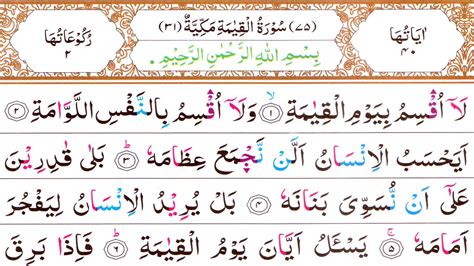 اٰيَاتُهَا ٤٠
(٧٥) سُوْرَةُ الْقِيٰمَةِ مَكِّيَّةٌ (٣١)
رُكُوْعَاتُهَا ٢
بِسْمِ اللّٰهِ الرَّحْمٰنِ الرَّحِيْمِ
لَاۤ اُقْسِمُ بِيَوْمِ الْقِيٰمَةِ ۙ﴿١﴾ وَلَاۤ اُقْسِمُ بِالنَّفْسِ اللَّوَّامَةِ ﴿٢﴾
اَيَحْسَبُ الْاِنْسَانُ اَلَّنْ نَّجْمَعَ عِظَامَهٗ ؕ﴿٣﴾ بَلٰى قٰدِرِيْنَ
عَلٰۤى اَنْ نُّسَوِّىَ بَنَانَهٗ ﴿٤﴾ بَلْ يُرِيْدُ الْاِنْسَانُ لِيَفْجُرَ
اَمَامَهٗ ۚ﴿٥﴾ يَسْـَٔلُ اَيَّانَ يَوْمُ الْقِيٰمَةِ ؕ﴿٦﴾ فَاِذَا بَرِقَ